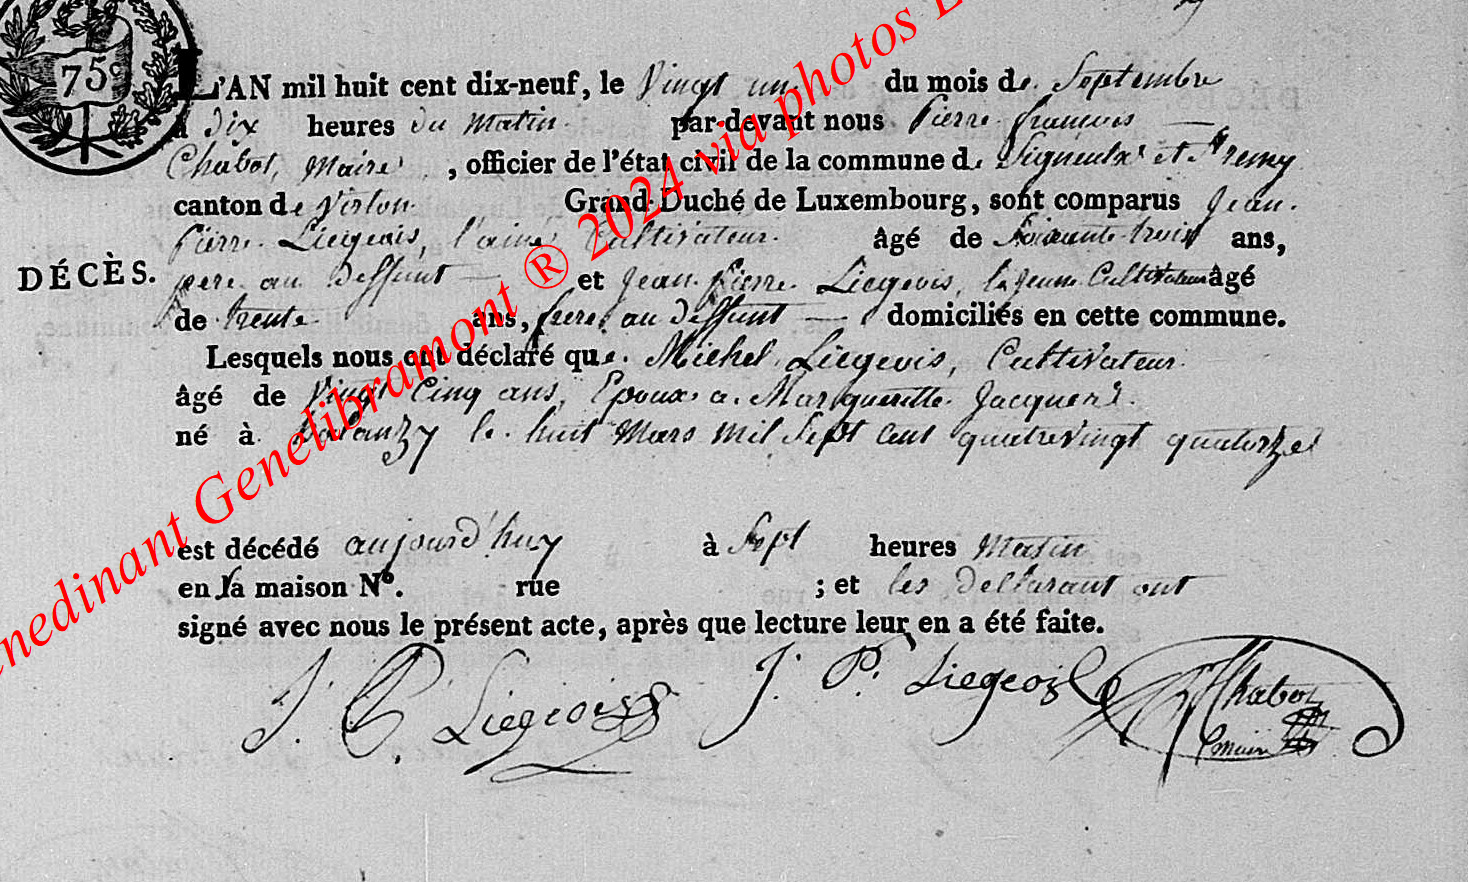 75c
L'AN mil huit cent dix-neuf, le Vingt un du mois de Septembre
à dix heures du matin par-devant nous Pierre francois
Chabot, Maire, officier de l'état civil de la commune de Signeulx et St remy
canton de Virton Grand-Duché de Luxembourg, sont comparus Jean
Pierre Liegeois, l'ainé Cultivateur âgé de Soixante trois ans,
DÉCÈS.
pere au deffunt et Jean Pierre Liegeois, le jeune Cultivateur âgé
de trente ans, frere au deffunt domiciliés en cette commune.
Lesquels nous ont déclaré que Michel Liegeois, Cultivateur
âgé de Vingt Cinq ans, Epoux a Margueritte
né à le huit Mars mil Sept cent quatrevingt quatorze
est décédé aujourd'huy à Sept heures Matin
en sa maison N°. rue ; et les dellarant ont
signé avec nous le présent acte, après que lecture leur en a été faite.
J. P. Liegeois J. P. Liegeois Chabot
maire
Genedinant Genelibramont ® 2024 via photos